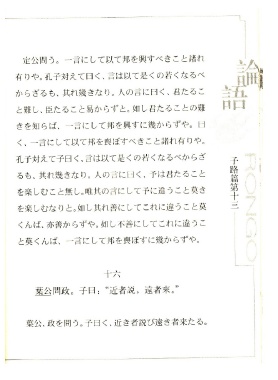 定公問う。一言にして以て邦を興すべきこと諸れ
有りや。孔子対えて曰く、言は以て是くの若くなるべ
からざるも、其れ幾きなり、人の言に曰く、君たるこ
と難し、臣たること易からずと。如し君たることの難
きを知らば、一言にして邦を興すに幾からずや。曰
く、一言にして以て邦を喪ぼすべきこと諸れ有りや。
孔子対えて曰く、言は以て是くの若くなるべからざ
るも、其れ幾きなり。人の言に曰く、予は君たること
を楽しむこと無し。唯其の言にして予に違うこと莫き
を楽しむなりと。如し其れ善にしてこれに違うこと莫
くんば、亦善からずや。如し不善にしてこれに違うこ
と莫くんば、一言にして邦を喪ぼすに幾からずや。
十六
葉公問政。子曰："近者説，遠者來。"
葉公、政を問う。子曰く、近き者説び遠き者来たる。
論語
RONGO
子路篇第十三